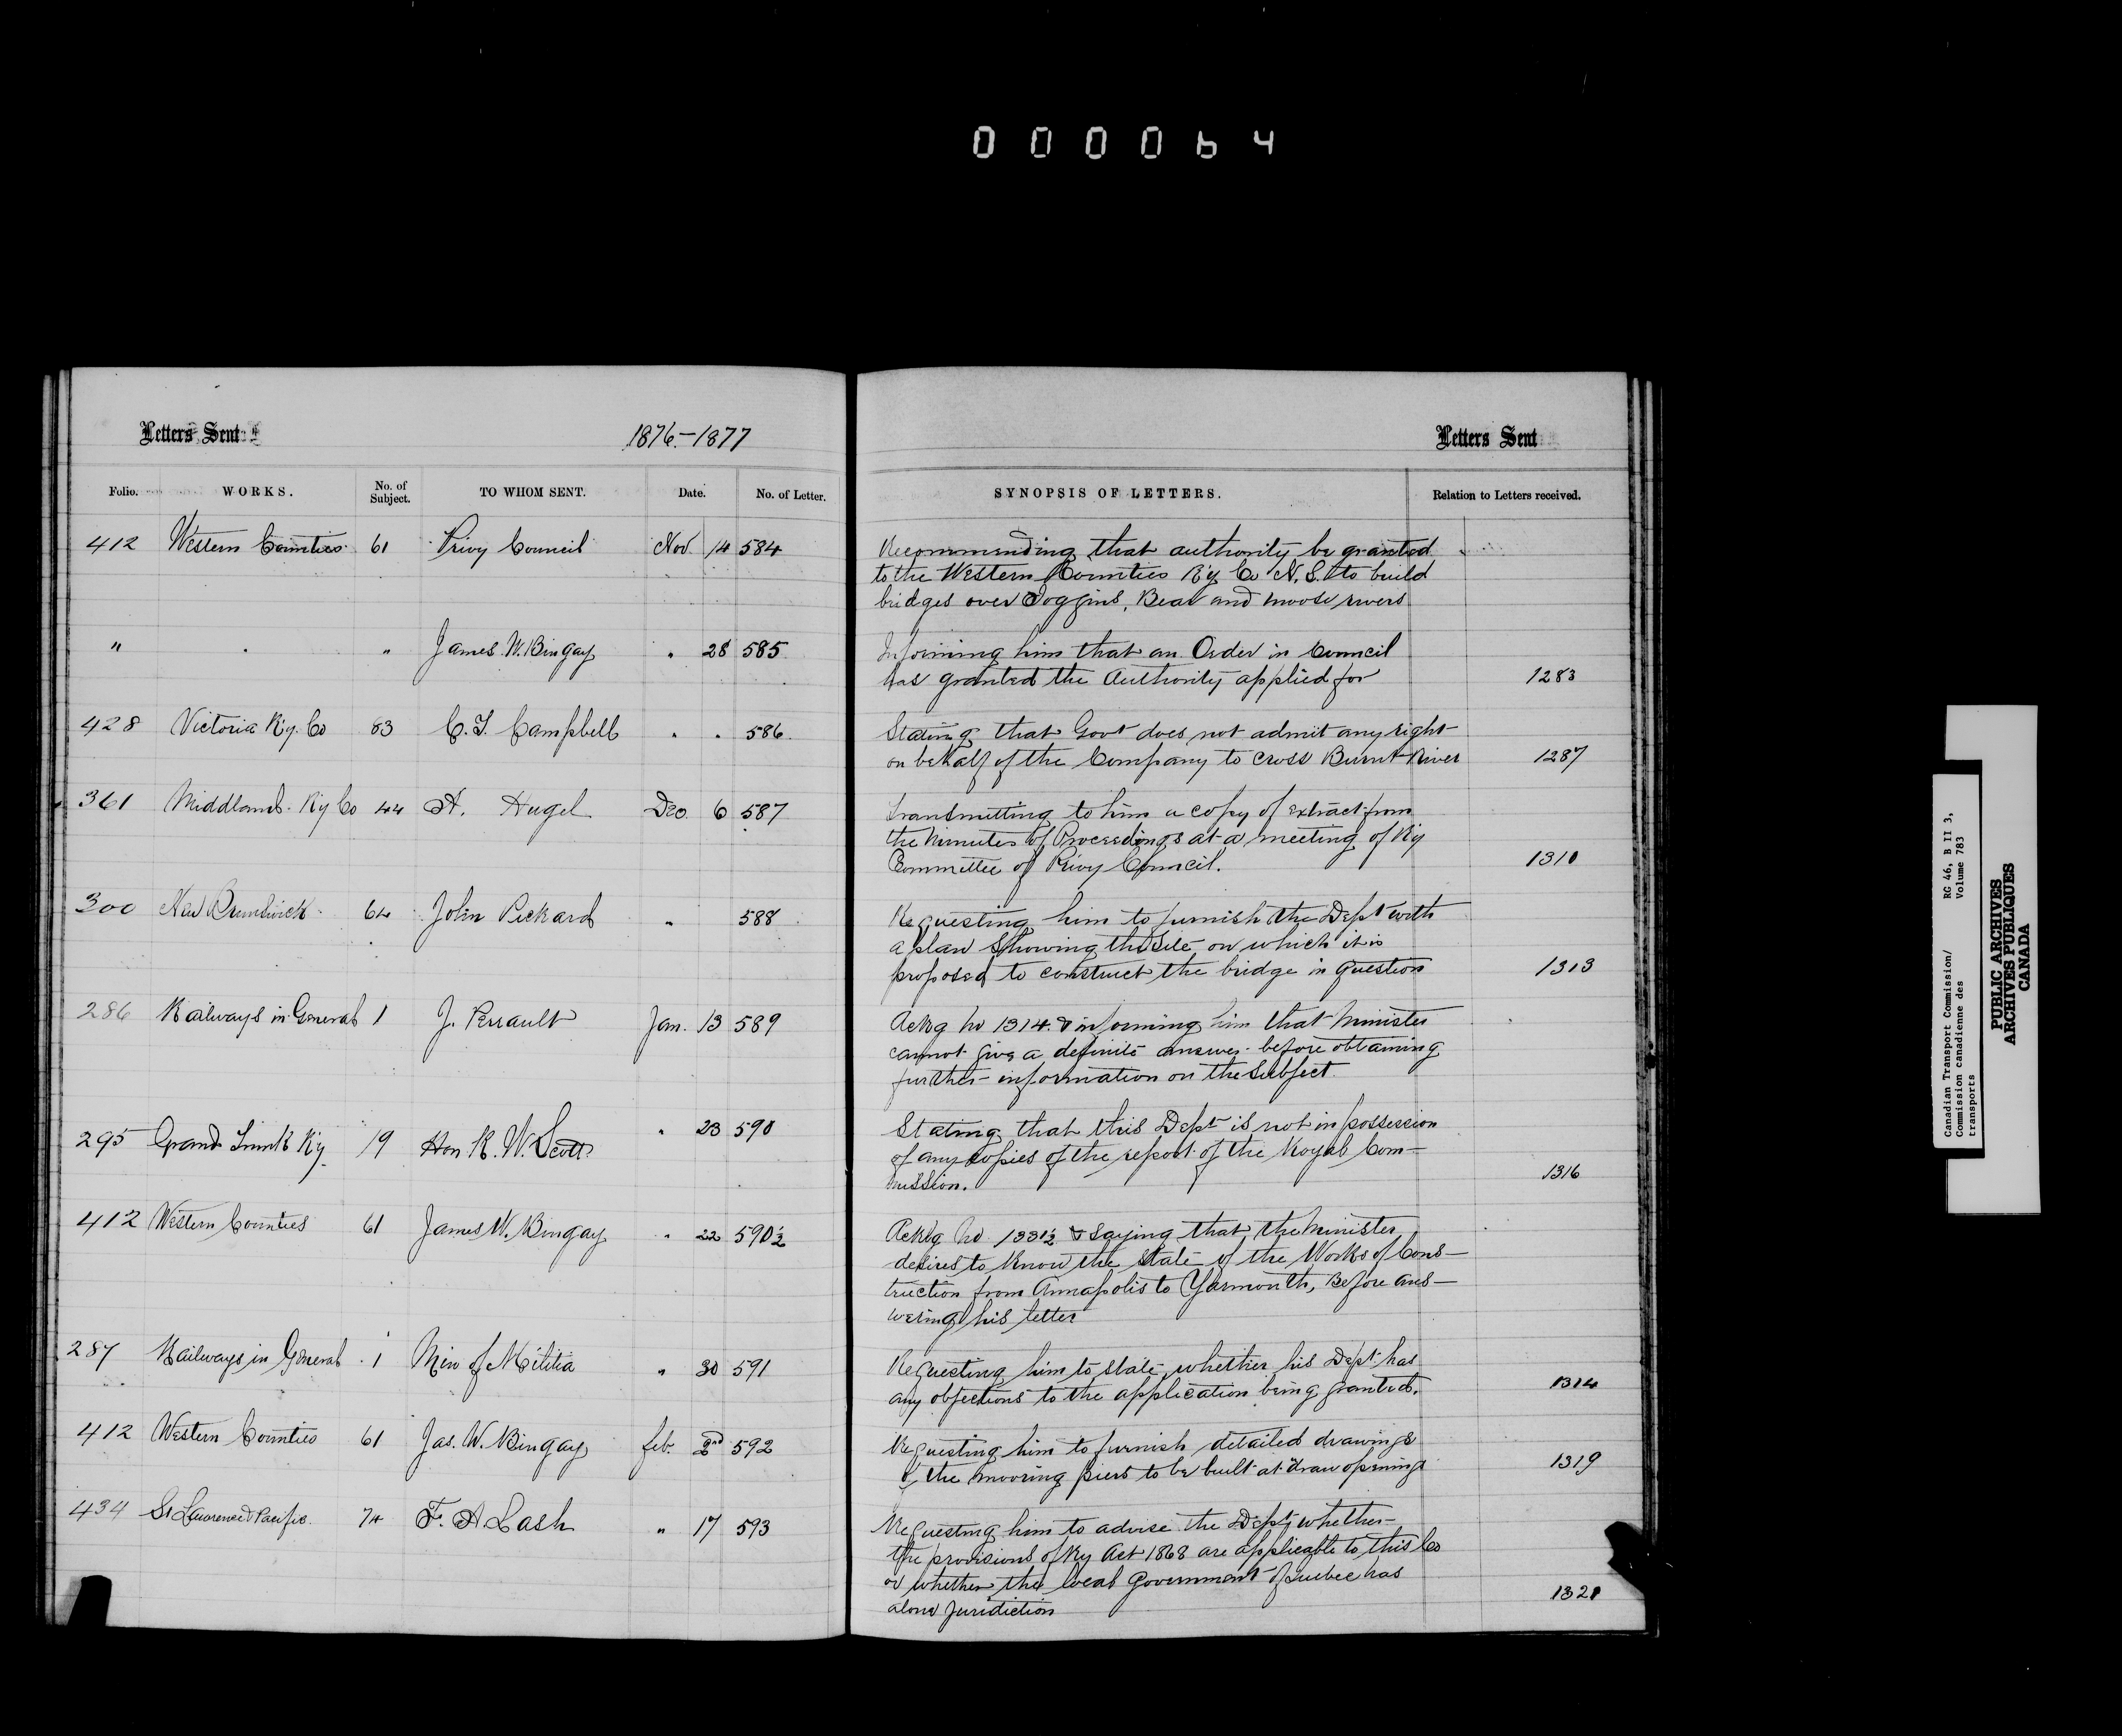 000064
Letters Sent 1876-1877 Letters Sent
Folio. WORKS. No. of Subject. TO WHOM SENT. Date. No. of Letter. SYNOPSIS OF LETTERS. Relation to Letters received.
412 Western Counties 61 Privy Council Nov 14 584 Recommending that authority be granted
to the Western Counties Ry Co N.S. to build
bridges over Joggins, Bear and Moose rivers
" " " James W. Bingay " 28 585 Informing him that an Order in Council
has granted the Authority applied for 1283
428 Victoria Ry. Co 83 C. J. Campbell " " 586 Stating that Govt does not admit any right
on behalf of the Company to cross Burnt River 1287
361 Middland Ry Co 44 A. Hugel Dec. 6 587 Transmitting to him a copy of extract from
the Minutes of Proceedings at a meeting of Ry
Committee of Privy Council. 1310
300 New Brunswick 64 John Pickard " 588 Requesting him to furnish the Dept with
a plan showing the site on which it is
proposed to construct the bridge in question 1313
286 Railways in General 1 J. Perrault Jan. 13 589 Ackg No 1314 & informing him that Minister
cannot give a definite answer before obtaining
further information on the Subject.
295 Grand Trunk Ry. 19 Hon R. W. Scott " 23 590 Stating that this Dept is not in possession
of any copies of the report of the Royal Com-
mission. 1316
412 Western Counties 61 James W. Bingay " 22 590½ Ackg No 1331½ & saying that the Minister
desires to know the state of the Works of Cons-
truction from Annapolis to Yarmouth, Before ans-
wering his letter
287 Railways in General 1 Min of Militia " 30 591 Requesting him to state whether his Dept has
any objections to the application being granted. 1314
412 Western Counties 61 Jas. W. Bingay feb. 2nd 592 Requesting him to furnish detailed drawings
of the mooring piers to be built at draw openings 1319
434 St Lawrence & Pacific. 74 F. A Lash " 17 593 Requesting him to advise the Dept, whether
the provisions of Ry Act 1868 are applicable to this Co
or whether the local Government of Quebec has
alone Juridiction 1321
Canadian Transport Commission/ RG 46, B II 3,
Commission canadienne des Volume 783
transports
PUBLIC ARCHIVES
ARCHIVES PUBLIQUES
CANADA